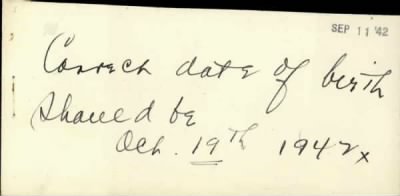 SEP 11 '42
Correct date of birth
should be
Oct. 19th 1942x